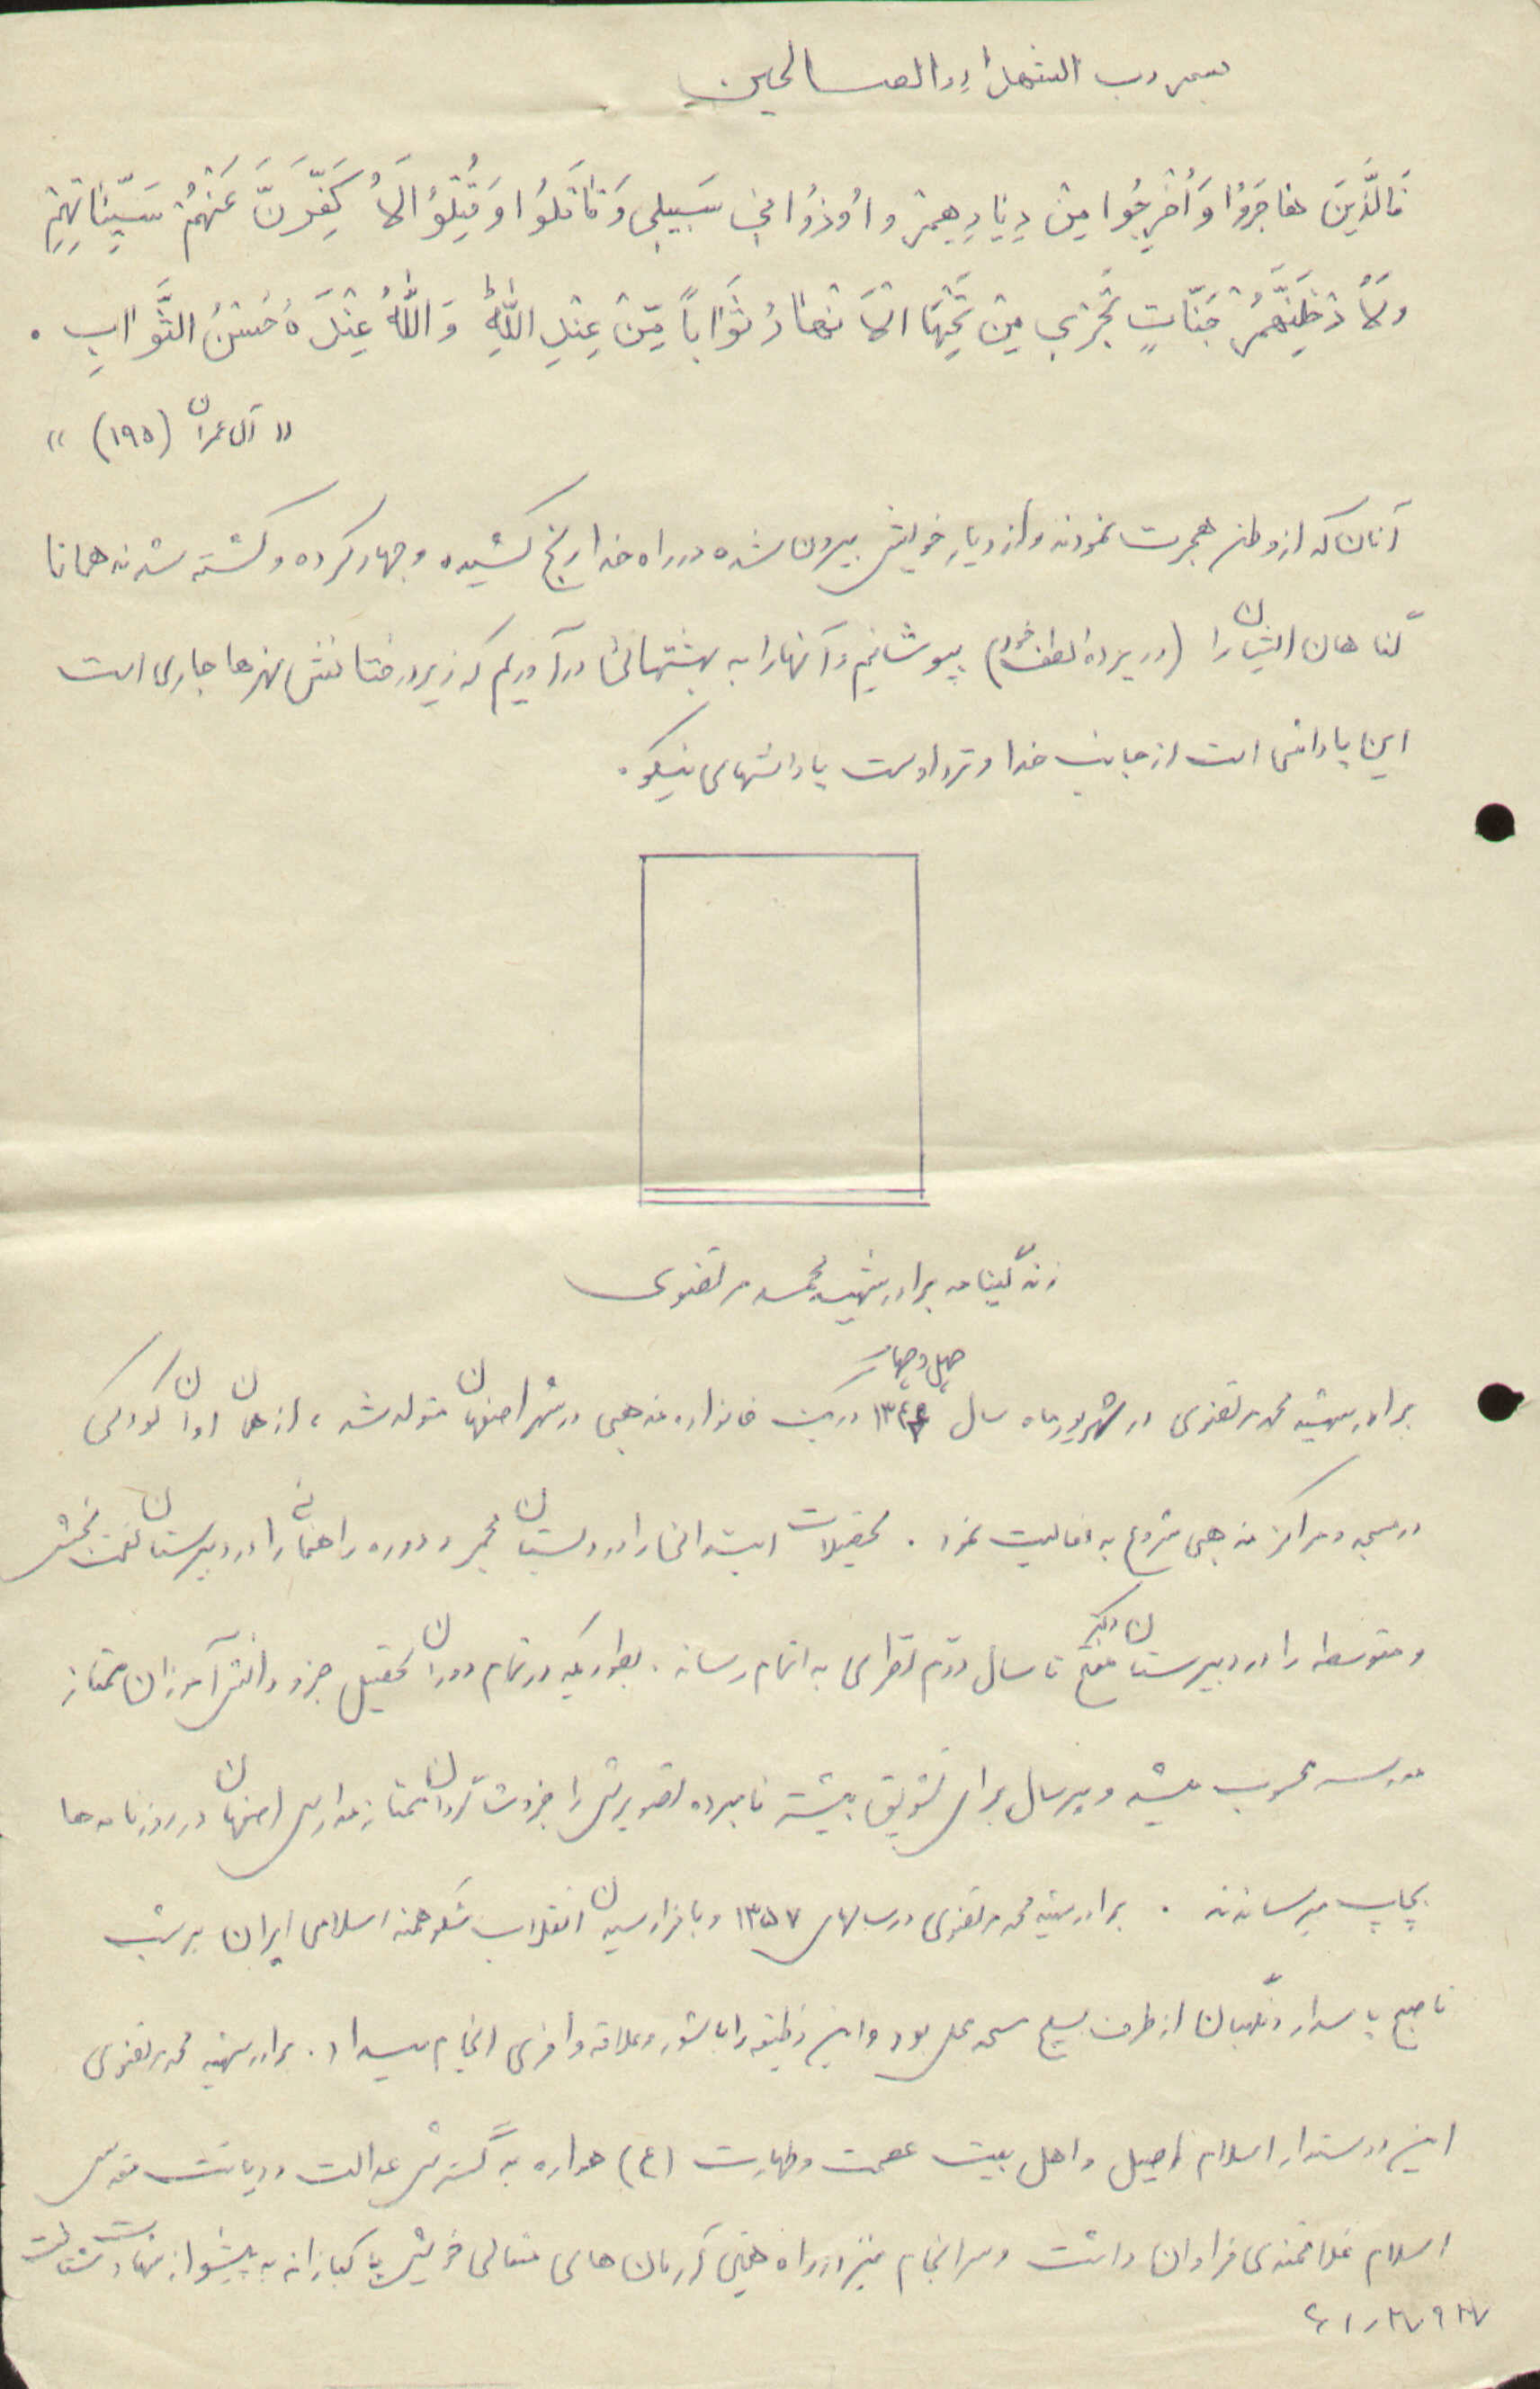 بسم رب الشهداء والصالحین
فَالَّذینَ هاجَرُوا وَأُخرِجُوا مِن دِیَارِهِمْ وَأُوذُوا فِی سَبِیلِی وَقَاتَلُوا وَقُتِلُوا لَأُكَفِّرَنَّ عَنْهُمْ سَیِّئَاتِهِمْ
وَلَأُدْخِلَنَّهُمْ جَنَّاتٍ تَجْرِی مِنْ تَحْتِهَا الْأَنْهَارُ ثَوَاباً مِّنْ عِنْدِ اللَّهِ وَاللَّهُ عِنْدَهُ حُسْنُ الثَّوَابِ .
« آل عمران (۱۹۵) »
آنان که از وطن هجرت نمودند و از دیار خویش بیرون شده در راه خدا رنج کشیده و جهاد کرده و کشته شدند همانا
گناهان ایشان را (در پرده لطف خود) بپوشانیم و آنها را به بهشتهائی درآوریم که زیر درختانش نهرها جاری است
این پاداشی است از جانب خدا و نزد اوست پاداشهای نیکو.
زندگینامه برادر شهید محمد مرتضوی
برادر شهید محمد مرتضوی در شهریور ماه سال ۱۳۴۴ چهل و چهار در یک خانواده مذهبی در شهر اصفهان متولد شد ، از همان اوان کودکی
در مسجد و مراکز مذهبی شروع به فعالیت نمود . تحصیلات ابتدائی را در دبستان فجر و دوره راهنمائی را در دبیرستان نعمت بخش
و متوسطه را در دبیرستان دکتر مفتح تا سال دوم نظری به اتمام رساند . بطوریکه در تمام دوران تحصیل جزو دانش آموزان ممتاز
مدرسه محسوب میشد و هر سال برای تشویق بیشتر نامبرده تصویرش را جزو شاگردان ممتاز مدارس اصفهان در روزنامه ها
بچاپ میرساندند . برادر شهید محمد مرتضوی در سالهای ۱۳۵۷ و با فرا رسیدن انقلاب شکوهمند اسلامی ایران هر شب
تا صبح پاسدار و نگهبان از طرف بسیج مسجد محل بود و این وظیفه را با شور و علاقه وافری انجام میداد . برادر شهید محمد مرتضوی
این دوستدار اسلام اصیل و اهل بیت عصمت و طهارت (ع) همواره به گسترش عدالت و دیانت مقدس
اسلام علاقمندی فراوان داشت و سرانجام نیز در راه همین آرمان های متعالی خویش پاکبازانه به پیشواز شهادت شتافت